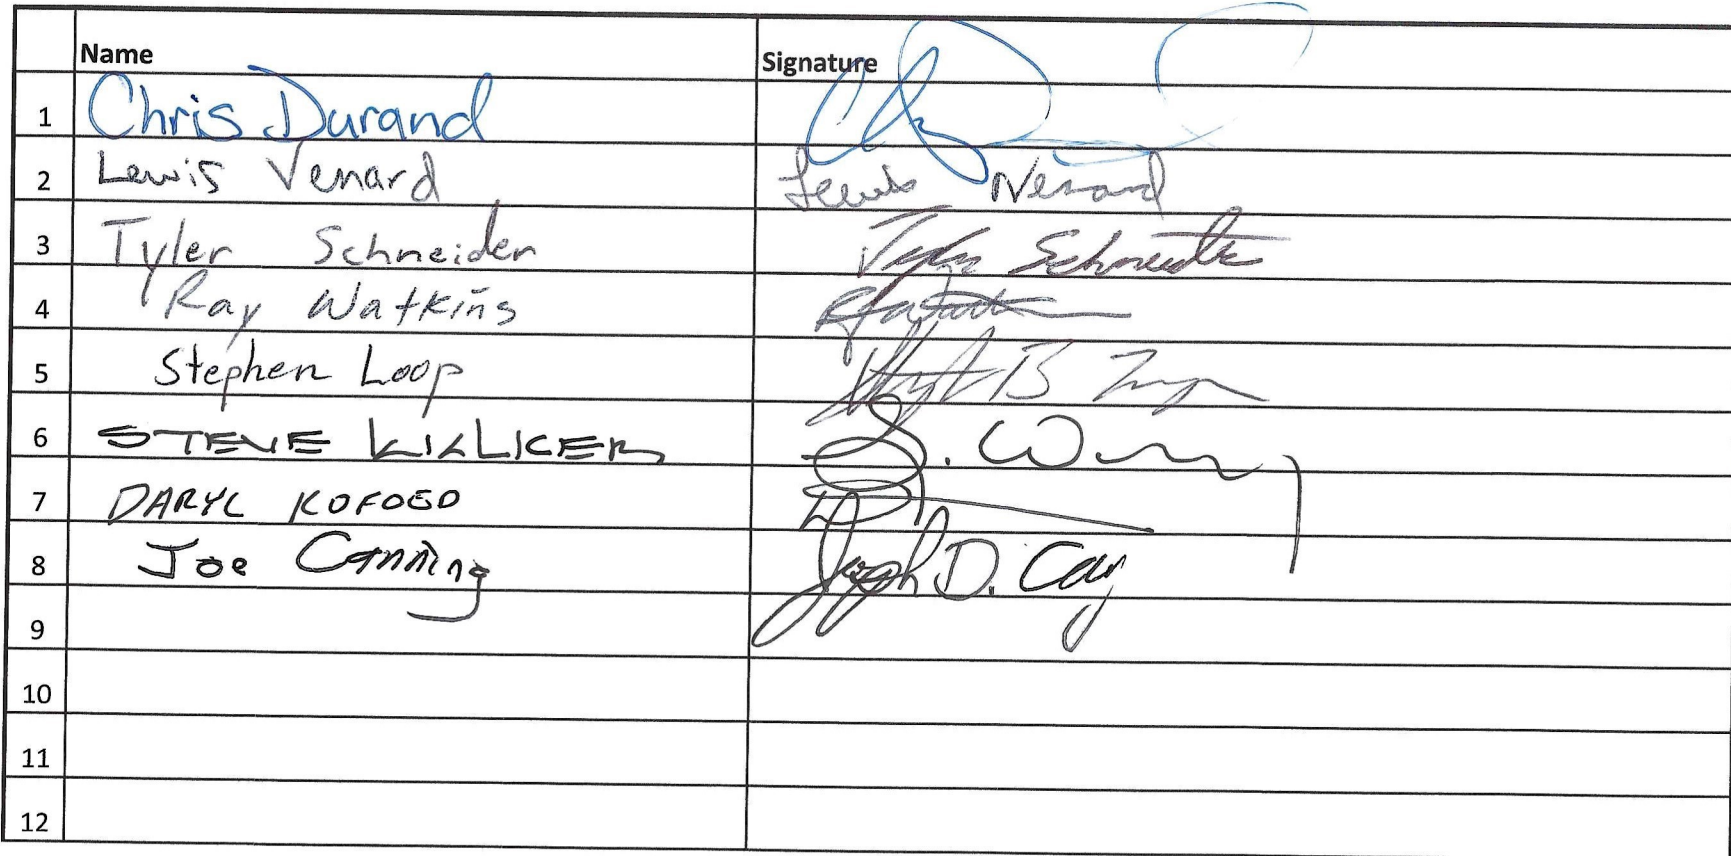 Name Signature
1 Chris Durand
2 Lewis Venard Lewis Venard
3 Tyler Schneider Tyler Schneider
4 Ray Watkins
5 Stephen Loop
6 STEVE S.
7 DARYL KOFOED
8 Joe Canning Joseph D.
9
10
11
12